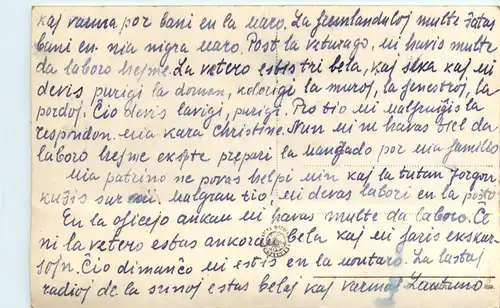 kaj varma por bani en la maro. La fremlanduloj multe ŝatas
bani en nia nigra maro. Post la veturago, mi havis multe
da laboro hejme. La vetero estis tri bela, kaj seka kaj mi
devis purigi la domon, kolorigi la muroj, la fenestroj, la
pordoj. Ĉio devis lavigi, purigi. Pro tio mi malfruiĝis la
respondon. mia kara Christine. Nun mi havas tiel da
laboro hejme eksple prepari la manĝado por mia familio
Mia patrino ne povas helpi min kaj la tutan
kuŝis sur malgraŭ tio, mi devas labori en la poŝto
En la oficejo ankaŭ mi havas multe da laboro. Ĉe
ni la vetero estas ankoraŭ bela kaj mi faris ekskur-
sojn. Ĉio dimanĉo mi estis en la montaro. La lastaj
radioj de la sunoj estas belaj kaj varmaj